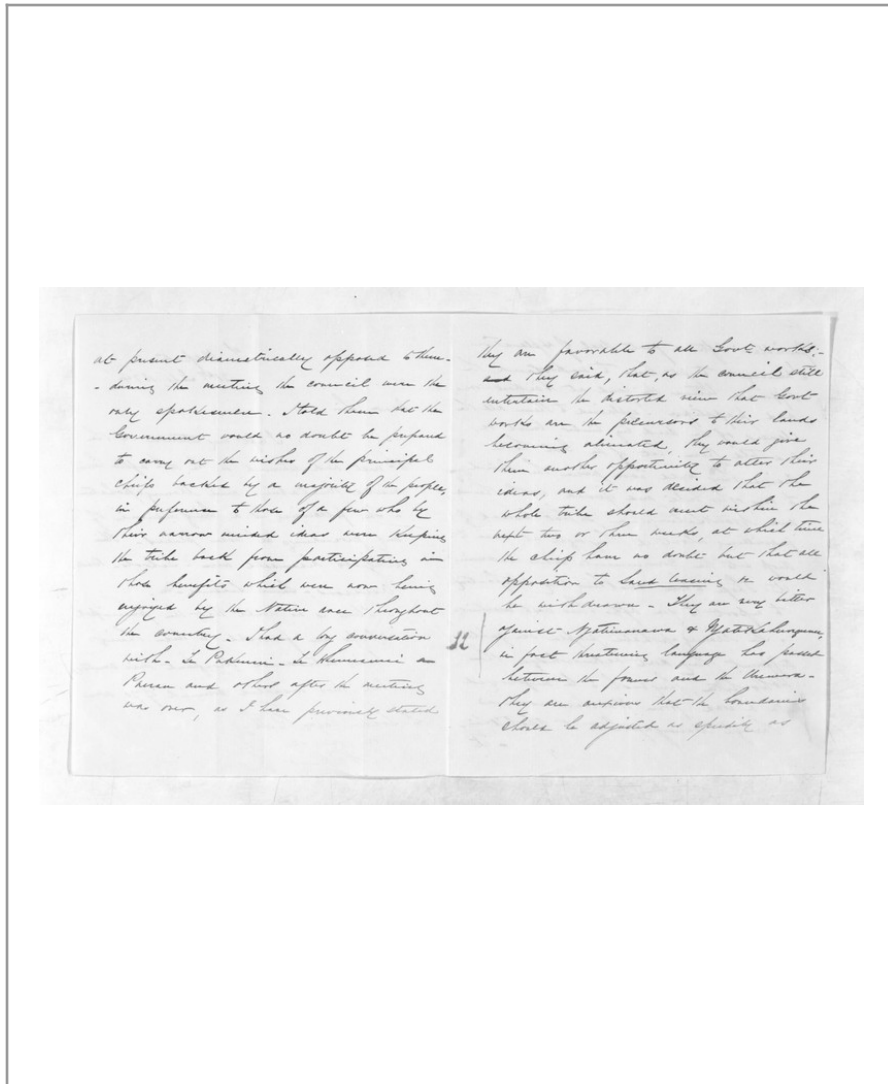 at present diametrically opposed to them -
- during the meeting the council were the
only spokesmen. I told them that the
Government would no doubt be prepared
to carry out the wishes of the principal
chiefs backed by a majority of the people,
in preference to those of a few who by
their narrow minded ideas were keeping
the tribe back from participating in
those benefits which were now being
enjoyed by the Native race throghout
the country. I had a long conversation
with - Te
and others after the meeting
was over, as I have previously stated
they are favorable to all Govt works, -
and they said, that, as the council still
entertain the distorted view that Govt
works are the precursors to their lands
becoming alienated, they would give
them another opportunity to alter their
ideas, and it was decided that the
whole tribe should meet within the
next two or three weeks, at which time
the chiefs have no doubt but that all
opposition to Land leasing would
be withdrawn - They are very bitter
against &
in fact threatening language has passed
between the former and the
they are anxious that the boundaries
should be adjusted as speedily as